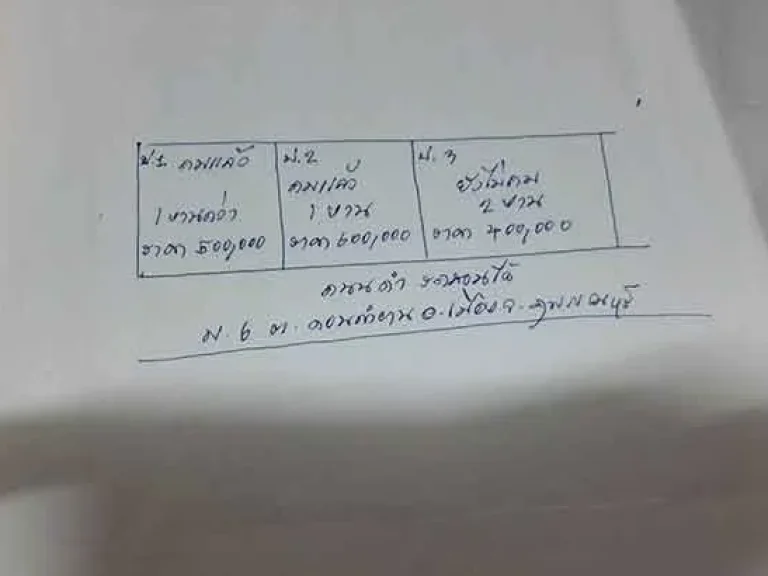 ป.1 ถมแล้ว
1 งานกว่า
ราคา 500,000
ป.2
ถมแล้ว
1 งาน
ราคา 600,000
ป.3
ยังไม่ถม
2 งาน
ราคา 400,000
ถนนดำ
ม.6 ต. ดอนกำยาน อ.เมือง จ.สุพรรณบุรี